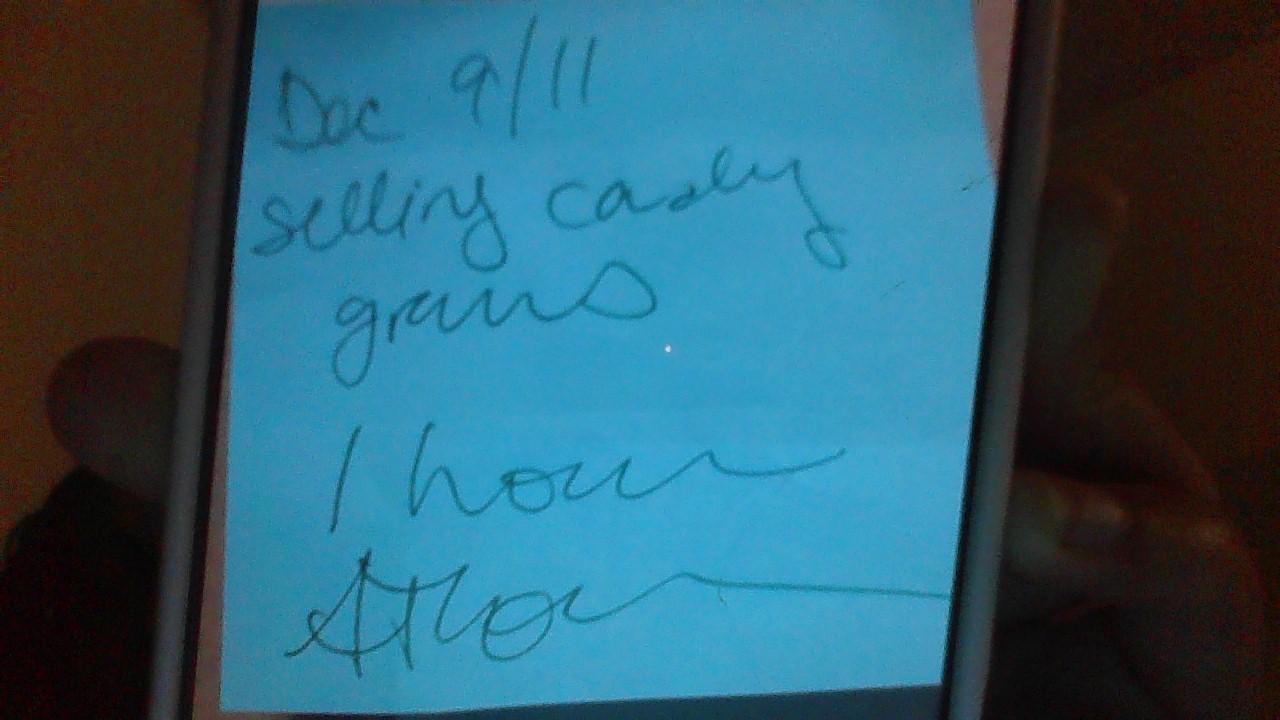 Dec 9/11
selling candy
grams
1 hour